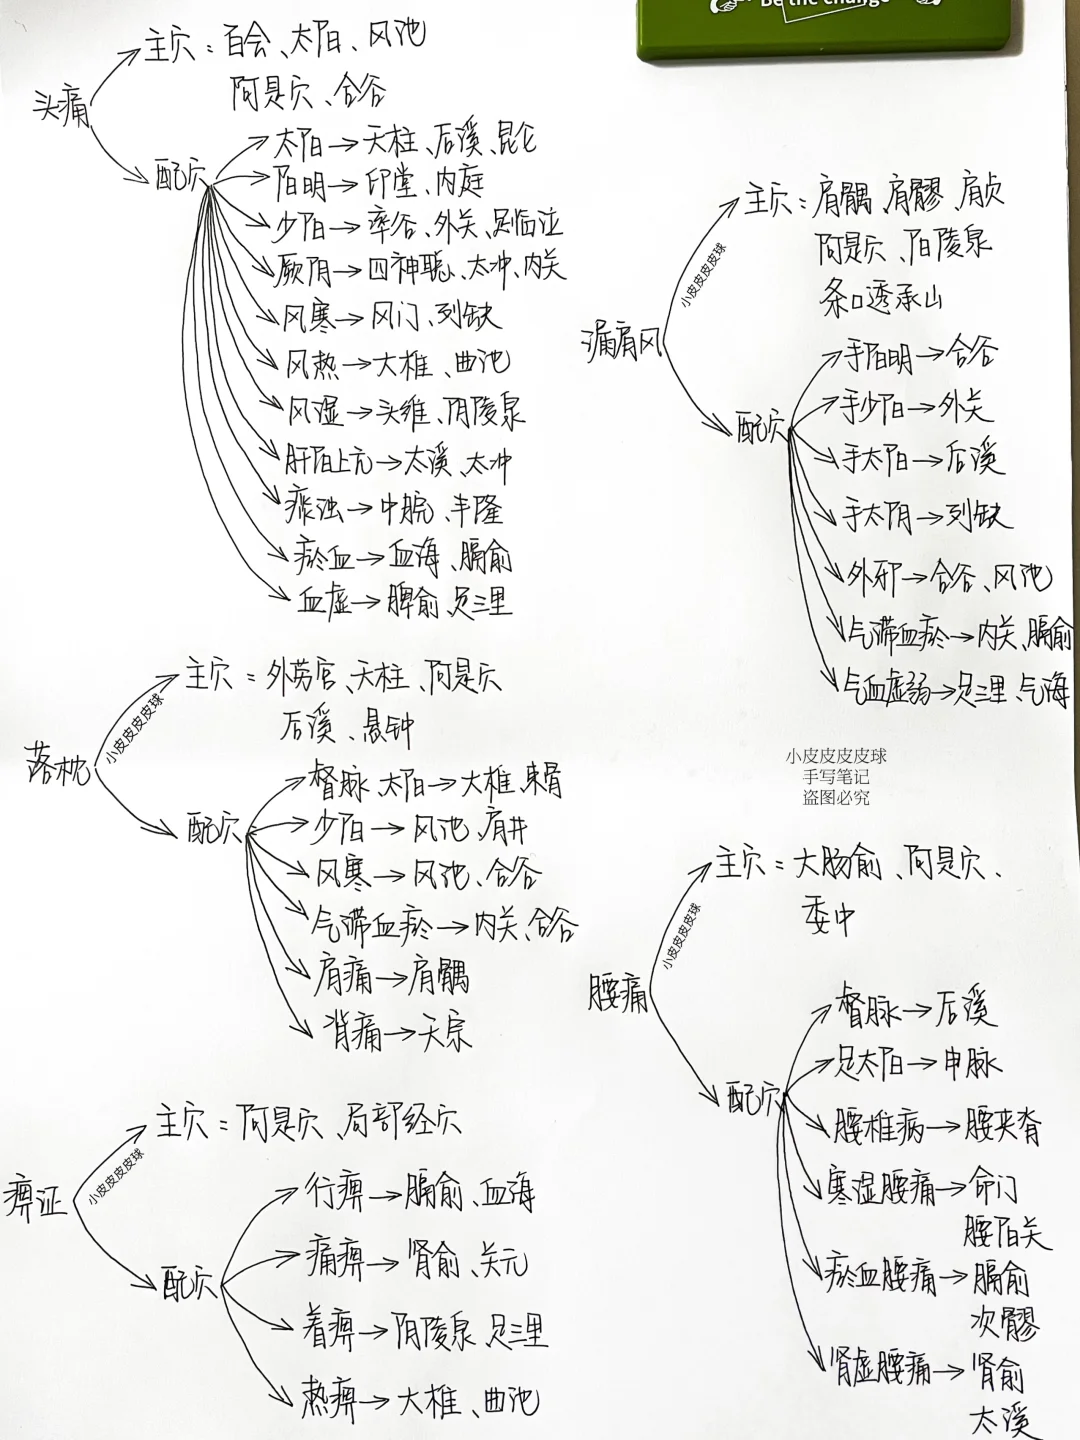 Be the change
头痛
主穴：百会、太阳、风池
阿是穴、合谷
配穴
太阳→天柱、后溪、昆仑
阳明→印堂、内庭
少阳→率谷、外关、足临泣
厥阴→四神聪、太冲、内关
风寒→风门、列缺
风热→大椎、曲池
风湿→头维、阴陵泉
肝阳上亢→太溪、太冲
痰浊→中脘、丰隆
瘀血→血海、膈俞
血虚→脾俞、足三里
漏肩风
小皮皮皮皮球
主穴：肩髃、肩髎、肩贞
阿是穴、阳陵泉
条口透承山
配穴
手阳明→合谷
手少阳→外关
手太阳→后溪
手太阴→列缺
外邪→合谷、风池
气滞血瘀→内关、膈俞
气血虚弱→足三里、气海
落枕
小皮皮皮皮球
主穴：外劳宫、天柱、阿是穴
后溪、悬钟
配穴
督脉、太阳→大椎、束骨
少阳→风池、肩井
风寒→风池、合谷
气滞血瘀→内关、合谷
肩痛→肩髃
背痛→天宗
小皮皮皮皮球
手写笔记
盗图必究
腰痛
小皮皮皮皮球
主穴：大肠俞、阿是穴、
委中
配穴
督脉→后溪
足太阳→申脉
腰椎病→腰夹脊
寒湿腰痛→命门
腰阳关
瘀血腰痛→膈俞
次髎
肾虚腰痛→肾俞
太溪
痹证
小皮皮皮皮球
主穴：阿是穴、局部经穴
配穴
行痹→膈俞、血海
痛痹→肾俞、关元
着痹→阴陵泉、足三里
热痹→大椎、曲池